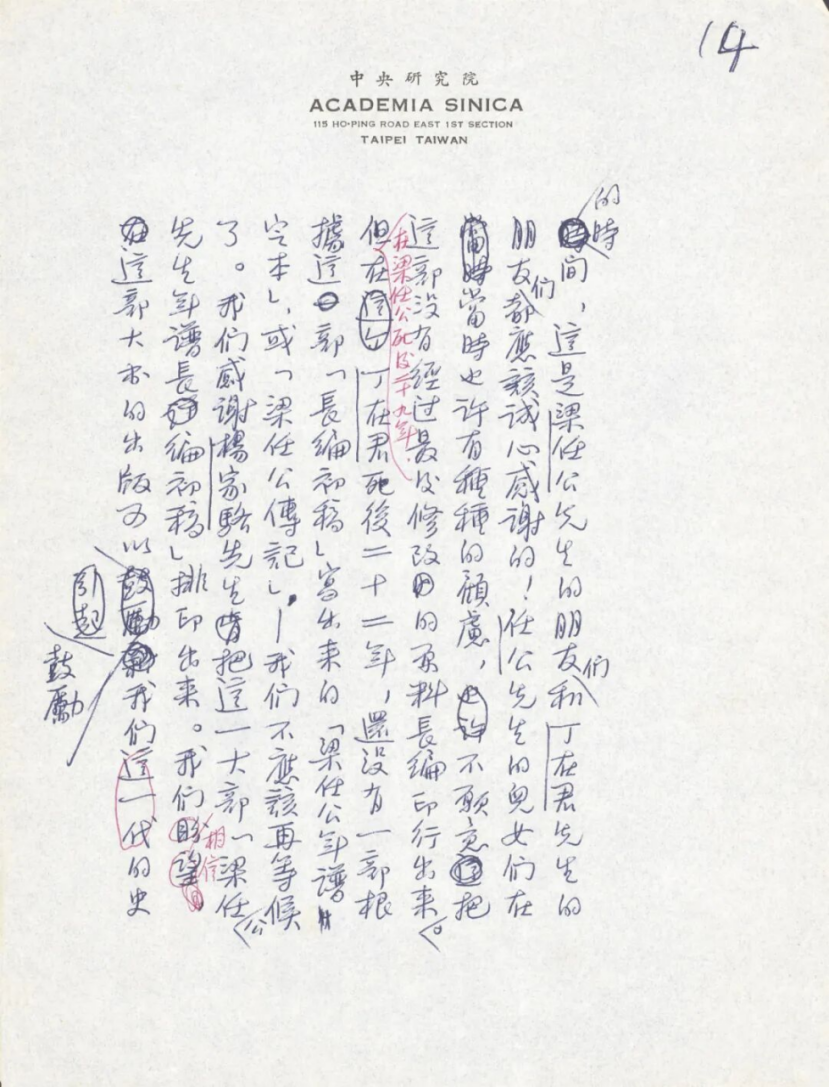 14
中央研究院
ACADEMIA SINICA
115 HO-PING ROAD EAST 1ST SECTION
TAIPEI TAIWAN
的時間，這是梁任公先生的朋友和丁在君先生的
朋友們都應該誠心感謝的！任公先生的兒女們在
當時當時也許有種種的顧慮，也許不願意把
這部沒有經过最后修改的原料長編印行出来。
但在梁任公死后二十九年，在這個丁在君死後二十二年，還没有一部根
據這部「長編初稿」寫出来的「梁任公年譜
定本」，或「梁任公傳記」。我們不應該再等候
了。我們感謝楊家駱先生肯把這一大部「梁任公
先生年譜長編初稿」排印出来。我們盼望相信
這部大書的出版可以鼓勵引起鼓勵我們這一代的史